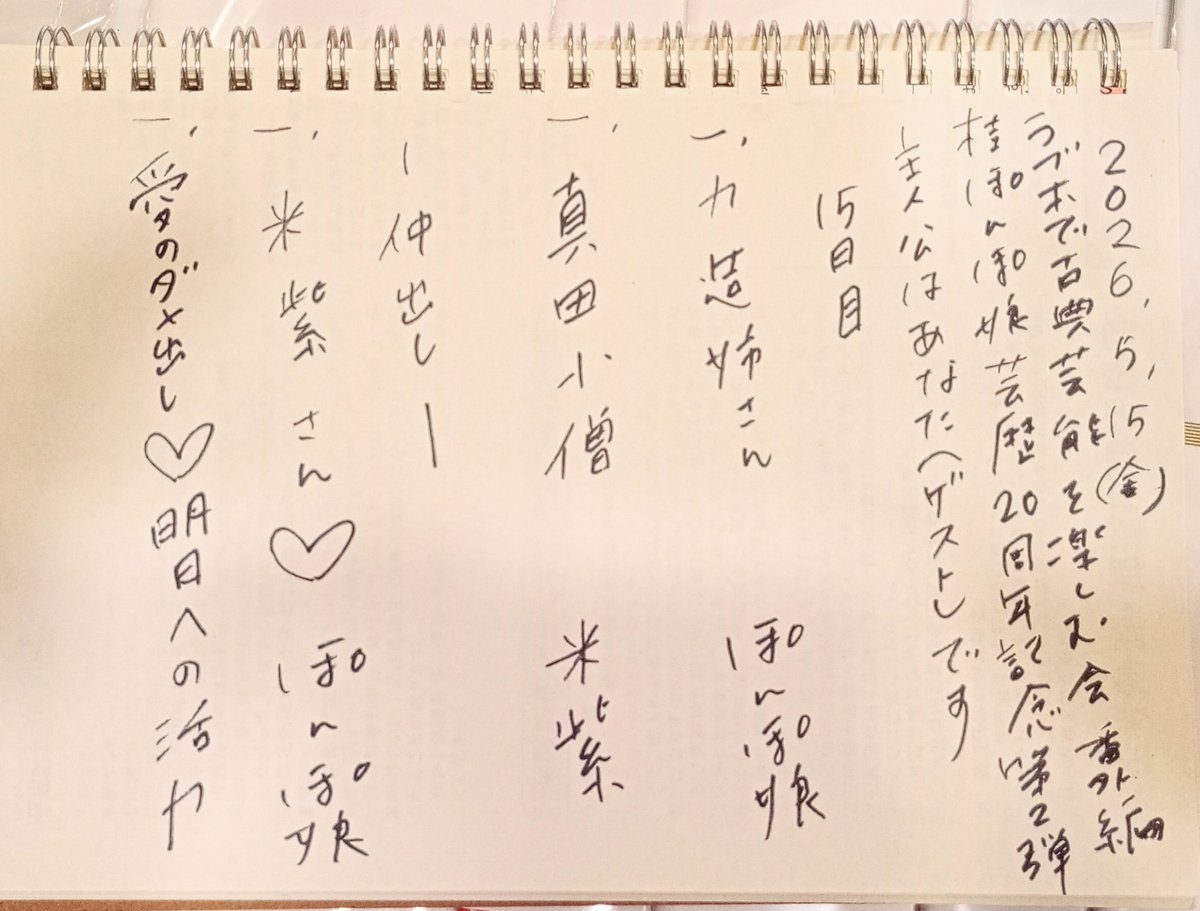 2026.5.15(金)
ラブホで古典芸能を楽しむ会 番外編
桂ぽんぽ娘芸歴20周年記念第2弾
主人公はあなた(ゲスト)です
15日目
一、力造姉さん ぽんぽ娘
一、真田小僧 米紫
ー仲出しー
一、米紫さん♡ ぽんぽ娘
一、愛のダメ出し♡明日への活力